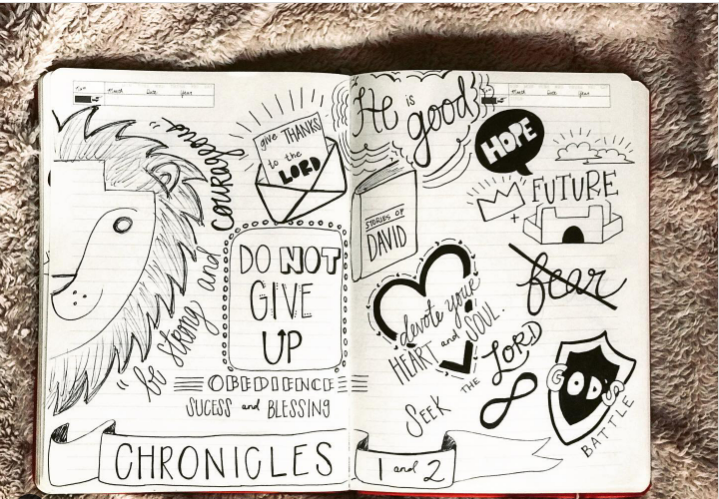 "be strong and courageous"
give THANKS
to the
LORD
DO NOT
GIVE
UP
OBEDIENCE
SUCESS and BLESSING
CHRONICLES
He is
good
HOPE
+ FUTURE
STORIES OF
DAVID
fear
devote your
HEART and SOUL.
SEEK
THE
LORD
GOD'S
BATTLE
1 and 2